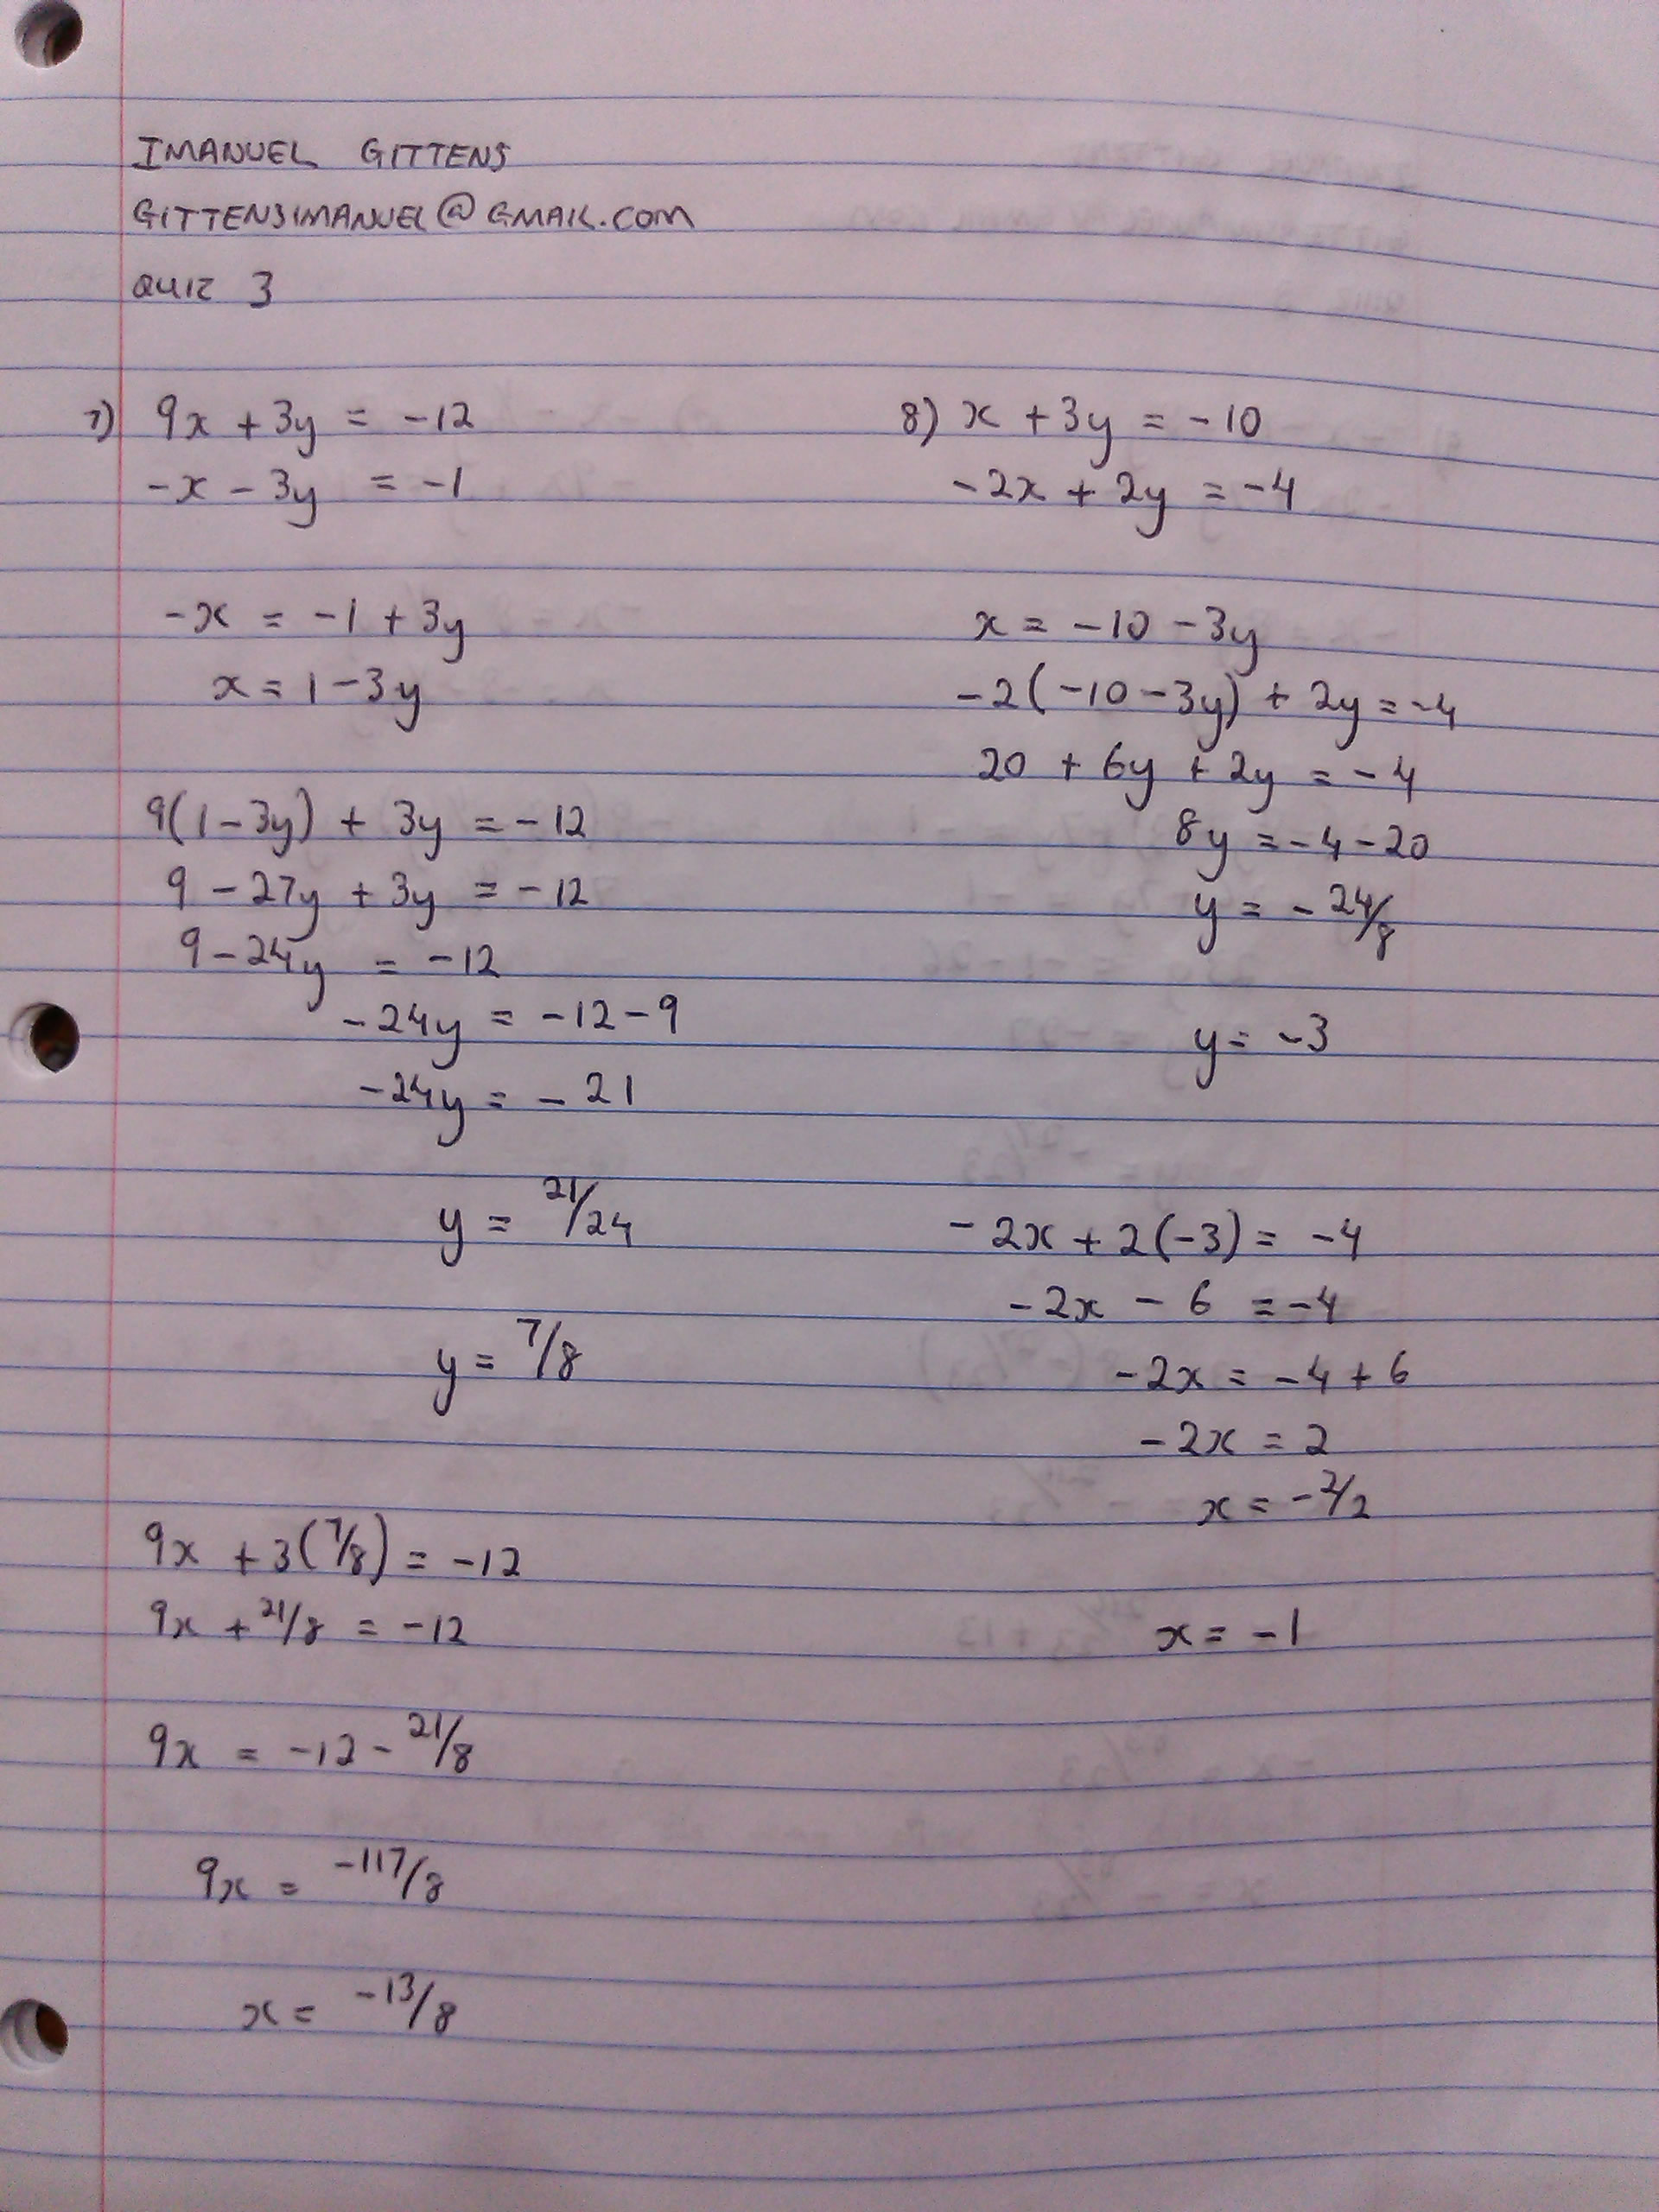 IMANUEL GITTENS
GITTENSIMANUEL@GMAIL.COM
QUIZ 3
7) 9x + 3y = -12
-x - 3y = -1
-x = -1 + 3y
x = 1 - 3y
9(1 - 3y) + 3y = -12
9 - 27y + 3y = -12
9 - 24y = -12
-24y = -12 - 9
-24y = - 21
y = 21/24
y = 7/8
9x + 3(7/8) = -12
9x + 21/8 = -12
9x = -12 - 21/8
9x = -117/8
x = -13/8
8) x + 3y = -10
-2x + 2y = -4
x = -10 - 3y
-2(-10 - 3y) + 2y = -4
20 + 6y + 2y = -4
8y = -4 - 20
y = - 24/8
y = -3
-2x + 2(-3) = -4
-2x - 6 = -4
-2x = -4 + 6
-2x = 2
x = -2/2
x = -1